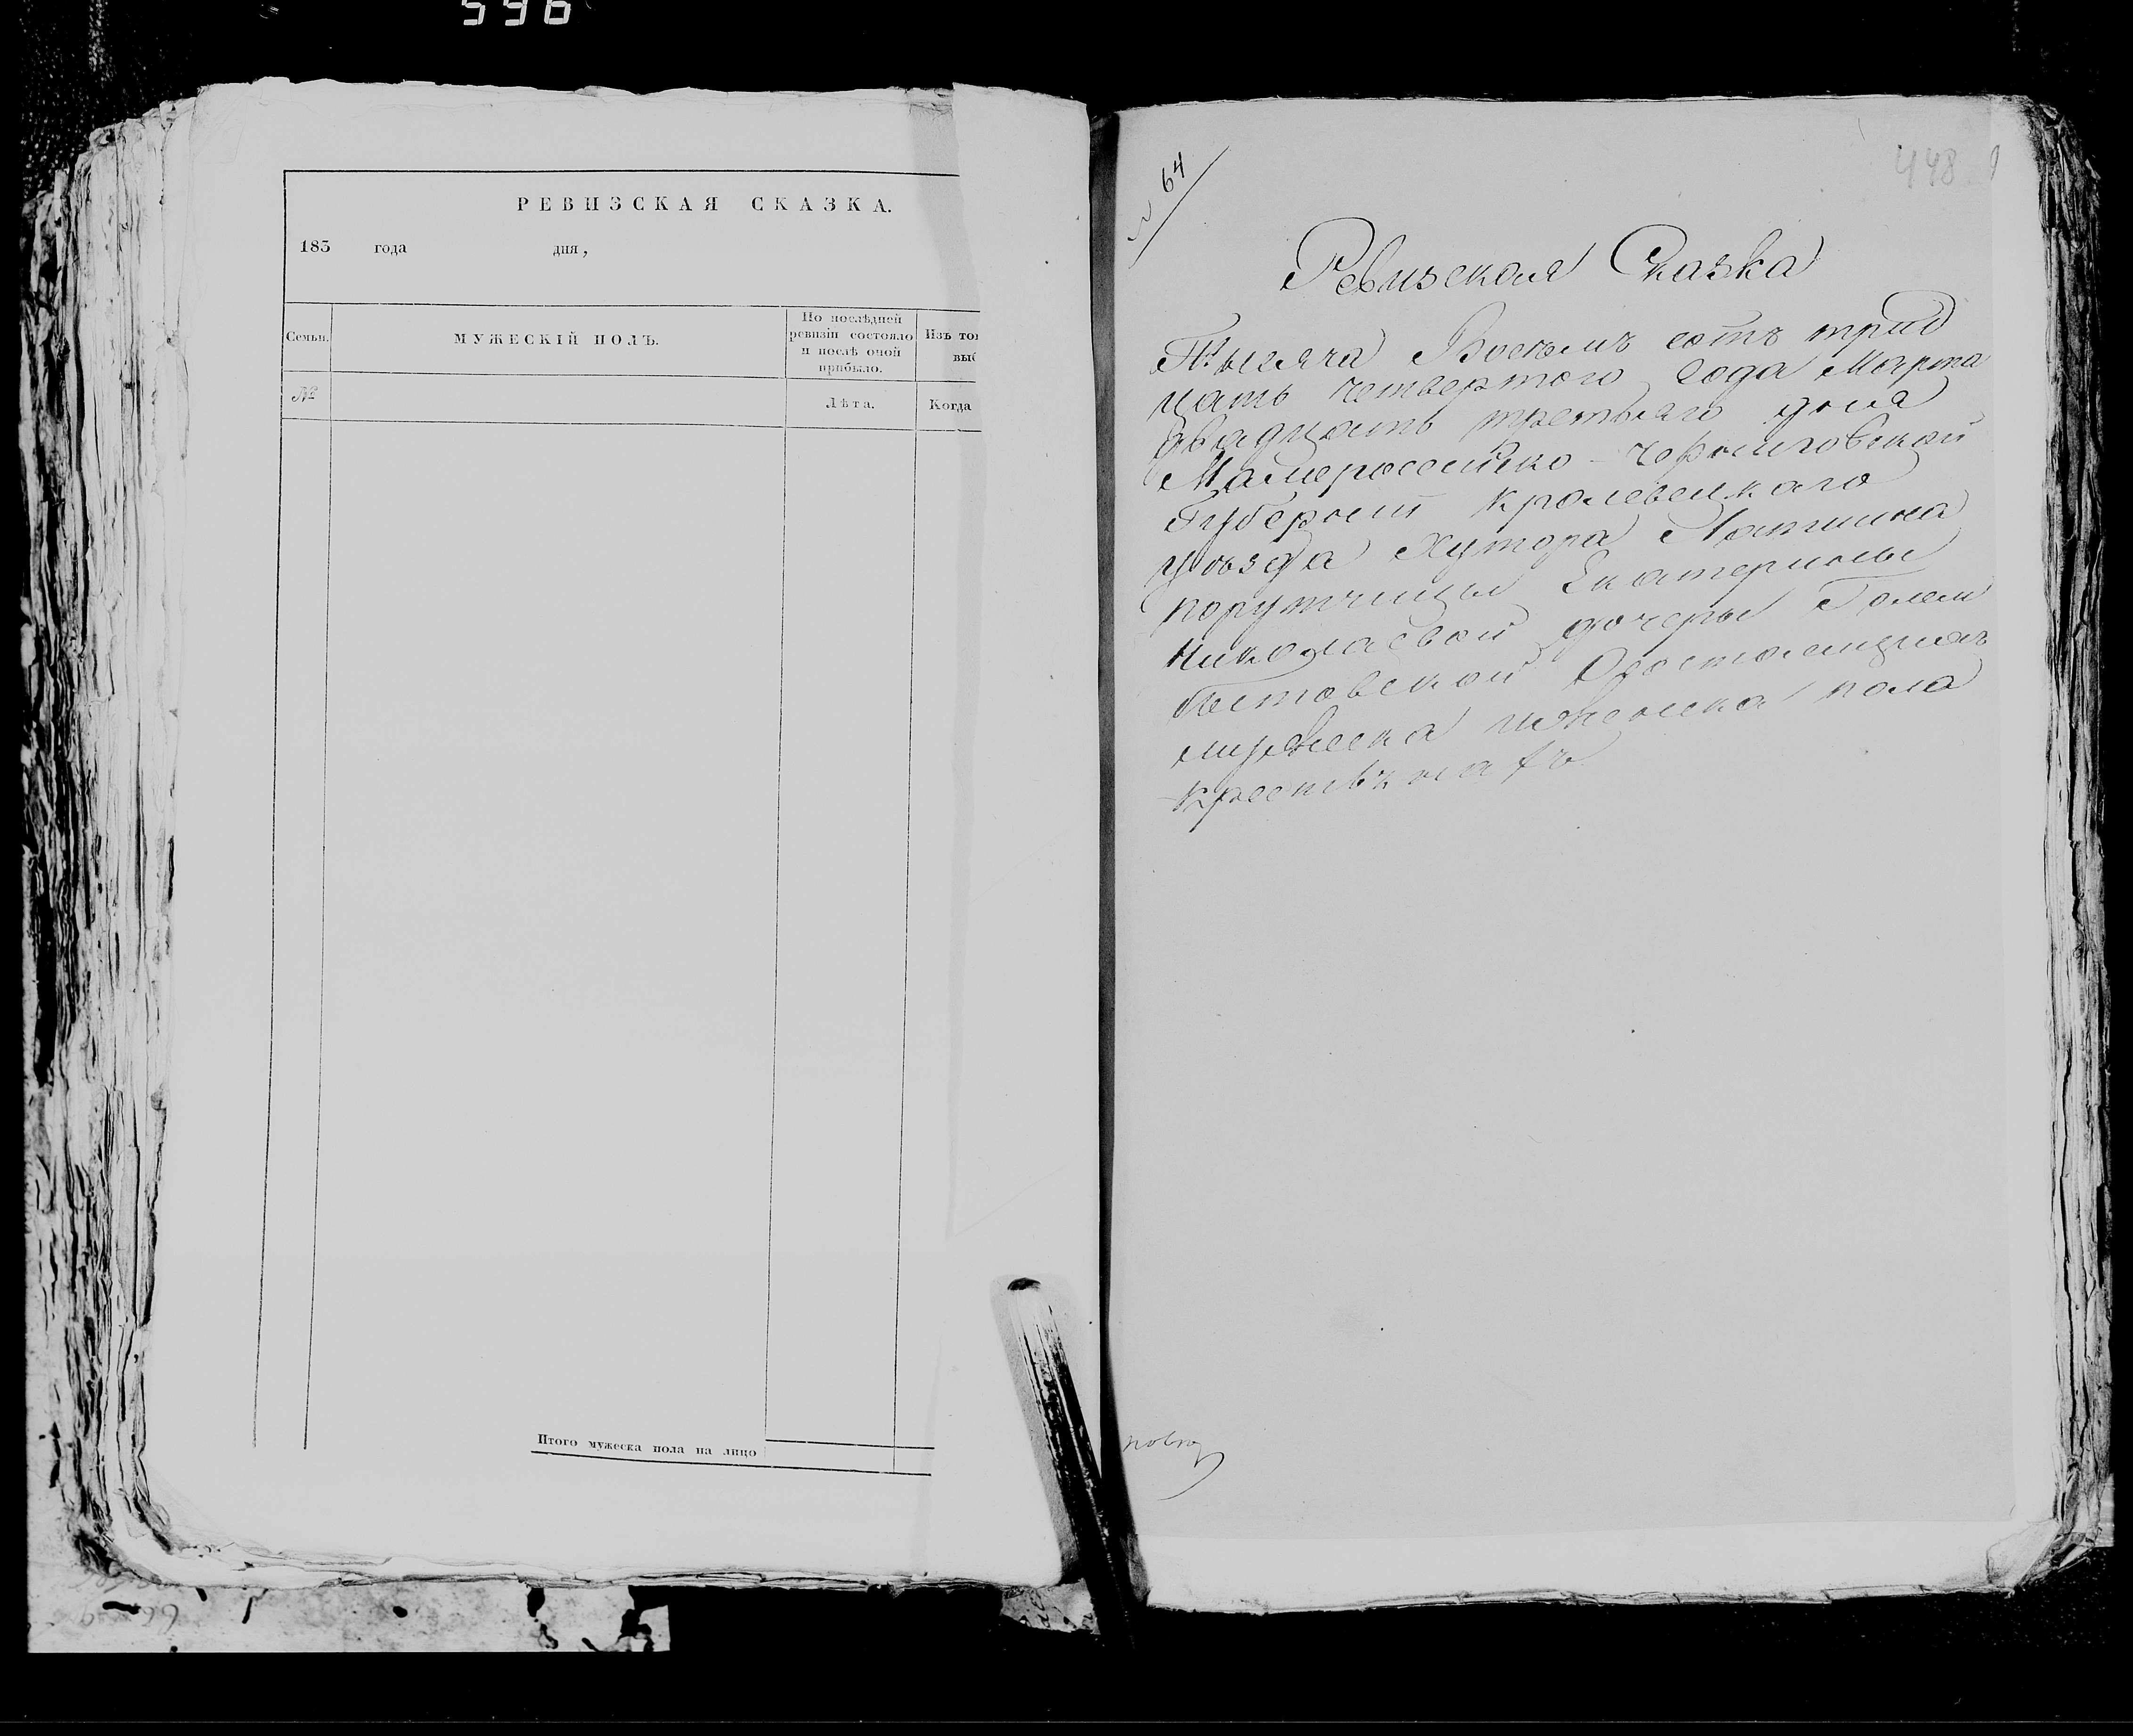 596
РЕВИЗСКАЯ СКАЗКА.
183 года дня,
Семьи.
МУЖЕСКІЙ ПОЛЪ.
По послѣдней
ревизіи состояло
и послѣ оной
прибыло.
Изъ
№
Лѣта.
Когда
Итого мужеска пола на лицо
№ 64
448
Ревизская Сказка
Тысяча Восемъ сотъ трид
цать четвертого Года Марта
двадцать третьяго дня
Малоросейско-Черниговской
Губернии Кролевецкаго
уѣзда Хутора
порутчицы Екатерины
Николаевой дочеры Голем
бестовской О состоящихъ
мужеска иженска пола
крестьянахъ